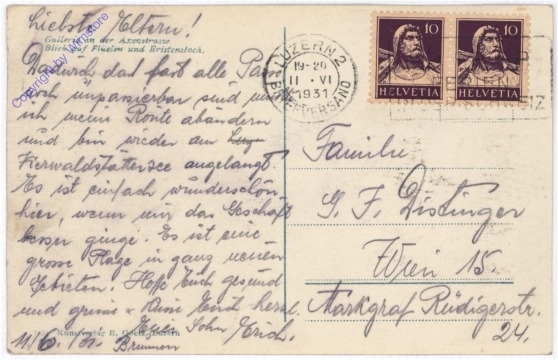 Liebste Eltern!
Gallerie an der Axenstrasse
Blick auf Flüelen und Bristenstock.
Dadurch, dass fast alle Pässe
noch unpassierbar sind muss
ich meine Route abändern
und bin wieder am
Vierwaldstättersee angelangt.
Es ist einfach wunderschön
hier, wenn nur das Geschäft
besser ginge. Es ist eine
grosse Plage in ganz neuen
Gebieten! Hoffe Euch gesund
und grüsse & küsse Euch herzl.
Euer Sohn Erich.
11/6. 31. Brunnen
Kunstverlag E. Goetz, Luzern
Copyright by Wimstore
LUZERN 2
19-20
11 · VI
1931
BRIEFVERSAND
10 10
HELVETIA HELVETIA
Familie
G. F. Distinger
Wien 15.
Markgraf Rüdigerstr.
24.